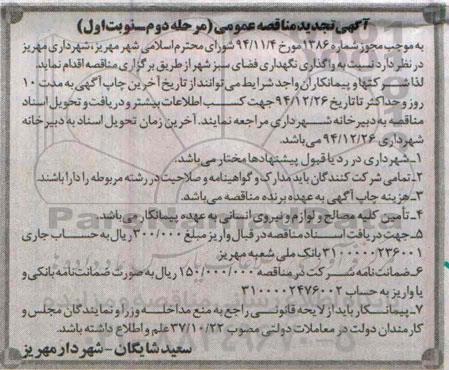 آگهی تجدید مناقصه عمومی (مرحله دوم-نوبت اول)
به موجب مجوز شماره ۱۳۸۶ مورخ ۹۴/۱۱/۴ شورای محترم اسلامی شهر مهریز، شهرداری مهریز
در نظر دارد نسبت به واگذاری نگهداری فضای سبز شهر از طریق برگزاری مناقصه اقدام نماید.
لذا شرکتها و پیمانکاران واجد شرایط می توانند از تاریخ آخرین چاپ آگهی به مدت ۱۰
روز و حداکثر تا تاریخ ۹۴/۱۲/۲۶ جهت کسب اطلاعات بیشتر و دریافت و تحویل اسناد
مناقصه به دبیرخانه شهرداری مراجعه نمایند. آخرین زمان تحویل اسناد به دبیرخانه
شهرداری ۹۴/۱۲/۲۶ می باشد.
۱-شهرداری در رد یا قبول پیشنهادها مختار می باشد.
۲-تمامی شرکت کنندگان باید مدارک و گواهینامه و صلاحیت در رشته مربوطه را دارا باشند.
۳-هزینه چاپ آگهی به عهده برنده مناقصه می باشد.
۴-تأمین کلیه مصالح و لوازم و نیروی انسانی به عهده پیمانکار می باشد.
۵-جهت دریافت اسناد مناقصه در قبال واریز مبلغ ۳۰۰/۰۰۰ ریال به حساب جاری
۳۱۰۰۰۰۰۲۳۶۰۰۱ بانک ملی شعبه مهریز.
۶-ضمانت نامه شرکت در مناقصه ۱۵۰/۰۰۰/۰۰۰ ریال به صورت ضمانت نامه بانکی و
یا واریز به حساب ۳۱۰۰۰۰۲۴۷۶۰۰۲
۷-پیمانکار باید از لایحه قانونی راجع به منع مداخله وزرا و نمایندگان مجلس و
کارمندان دولت در معاملات دولتی مصوب ۳۷/۱۰/۲۲ علم و اطلاع داشته باشد.
سعید شایگان-شهردار مهریز